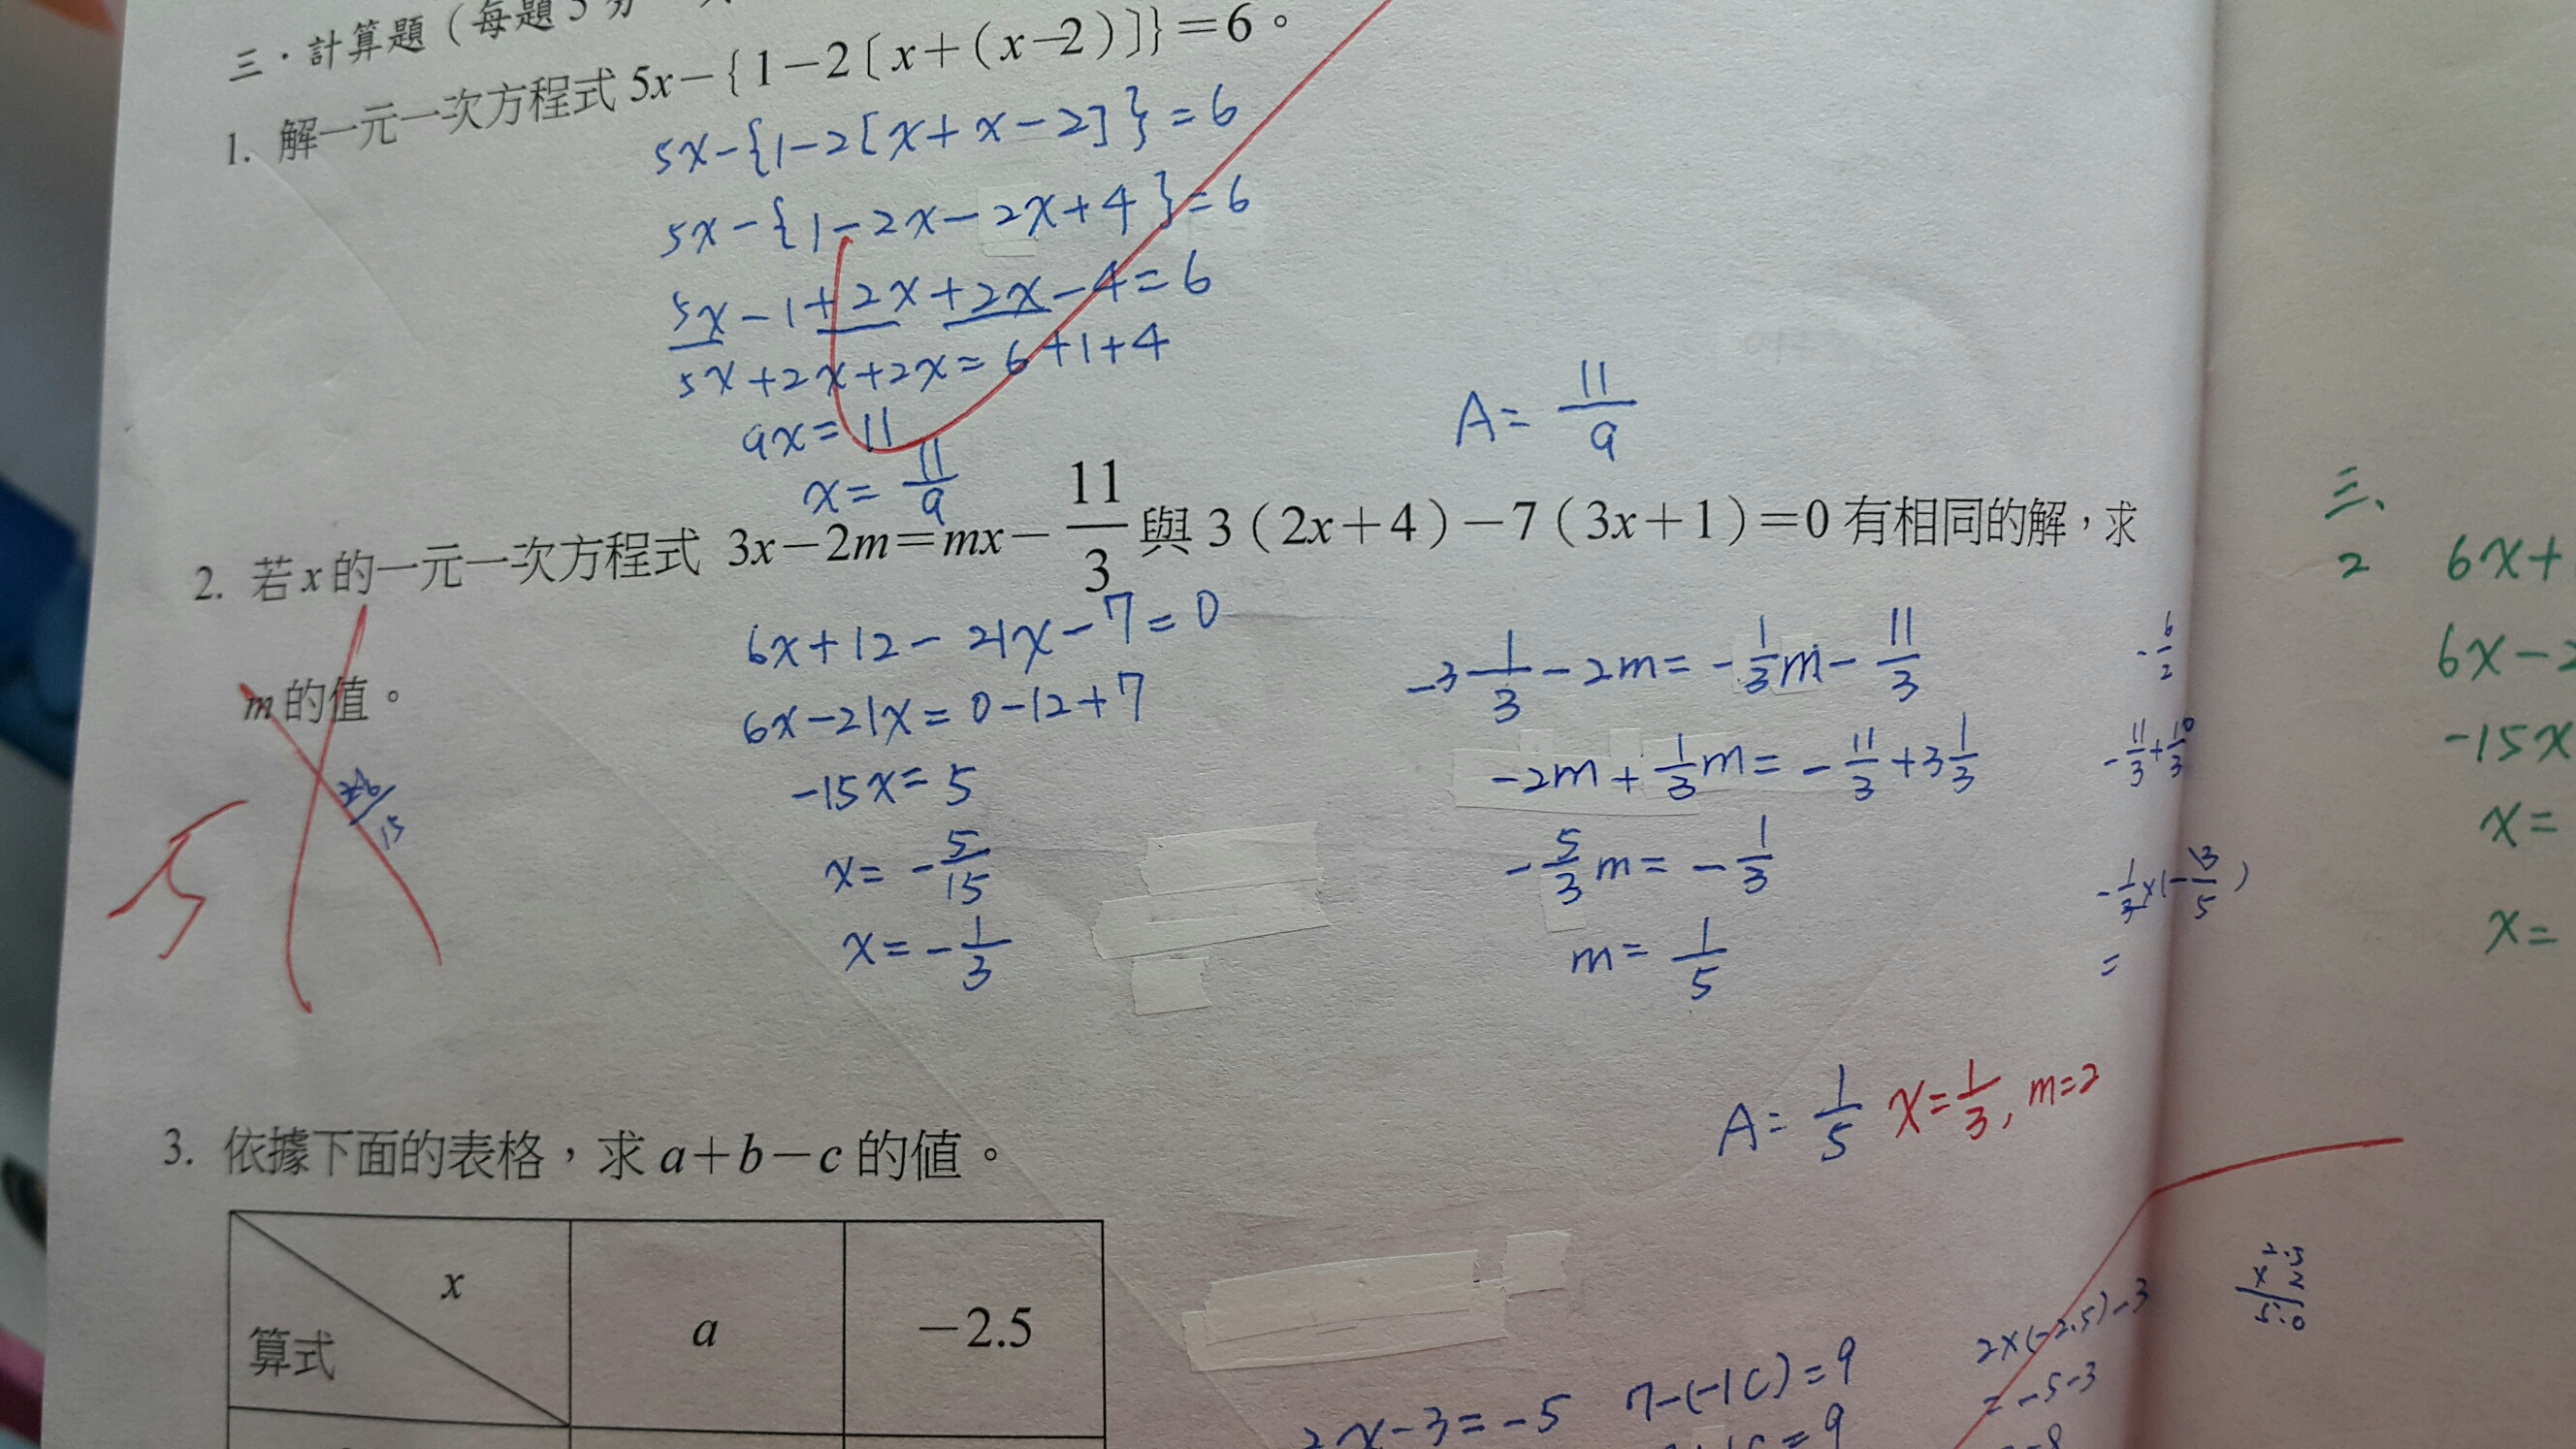 三、計算題(每題5分
1. 解一元一次方程式 5x-{1-2〔x+(x-2)〕}=6。
5x-{1-2[x+x-2]}=6
5x-{1-2x-2x+4}=6
5x-1+2x+2x-4=6
5x+2x+2x=6+1+4
9x=11
x=11/9
A=11/9
2. 若x的一元一次方程式 3x-2m=mx-11/3 與 3(2x+4)-7(3x+1)=0 有相同的解,求
m的值。
6x+12-21x-7=0
6x-21x=0-12+7
-15x=5
x=-5/15
x=-1/3
-3 1/3-2m=-1/3m-11/3
-2m+1/3m=-11/3+3 1/3
-5/3m=-1/3
m=1/5
-6/2
-11/3+10/3
-1/3×(-3/5)
=
A=1/5 x=1/3, m=2
三、
2 6x+
6x-2
-15x
x=
x=
3. 依據下面的表格,求 a+b-c 的值。
x
算式
a
-2.5
2x-3=-5
7-(-1c)=9
=9
2×(-2.5)-3
=-5-3